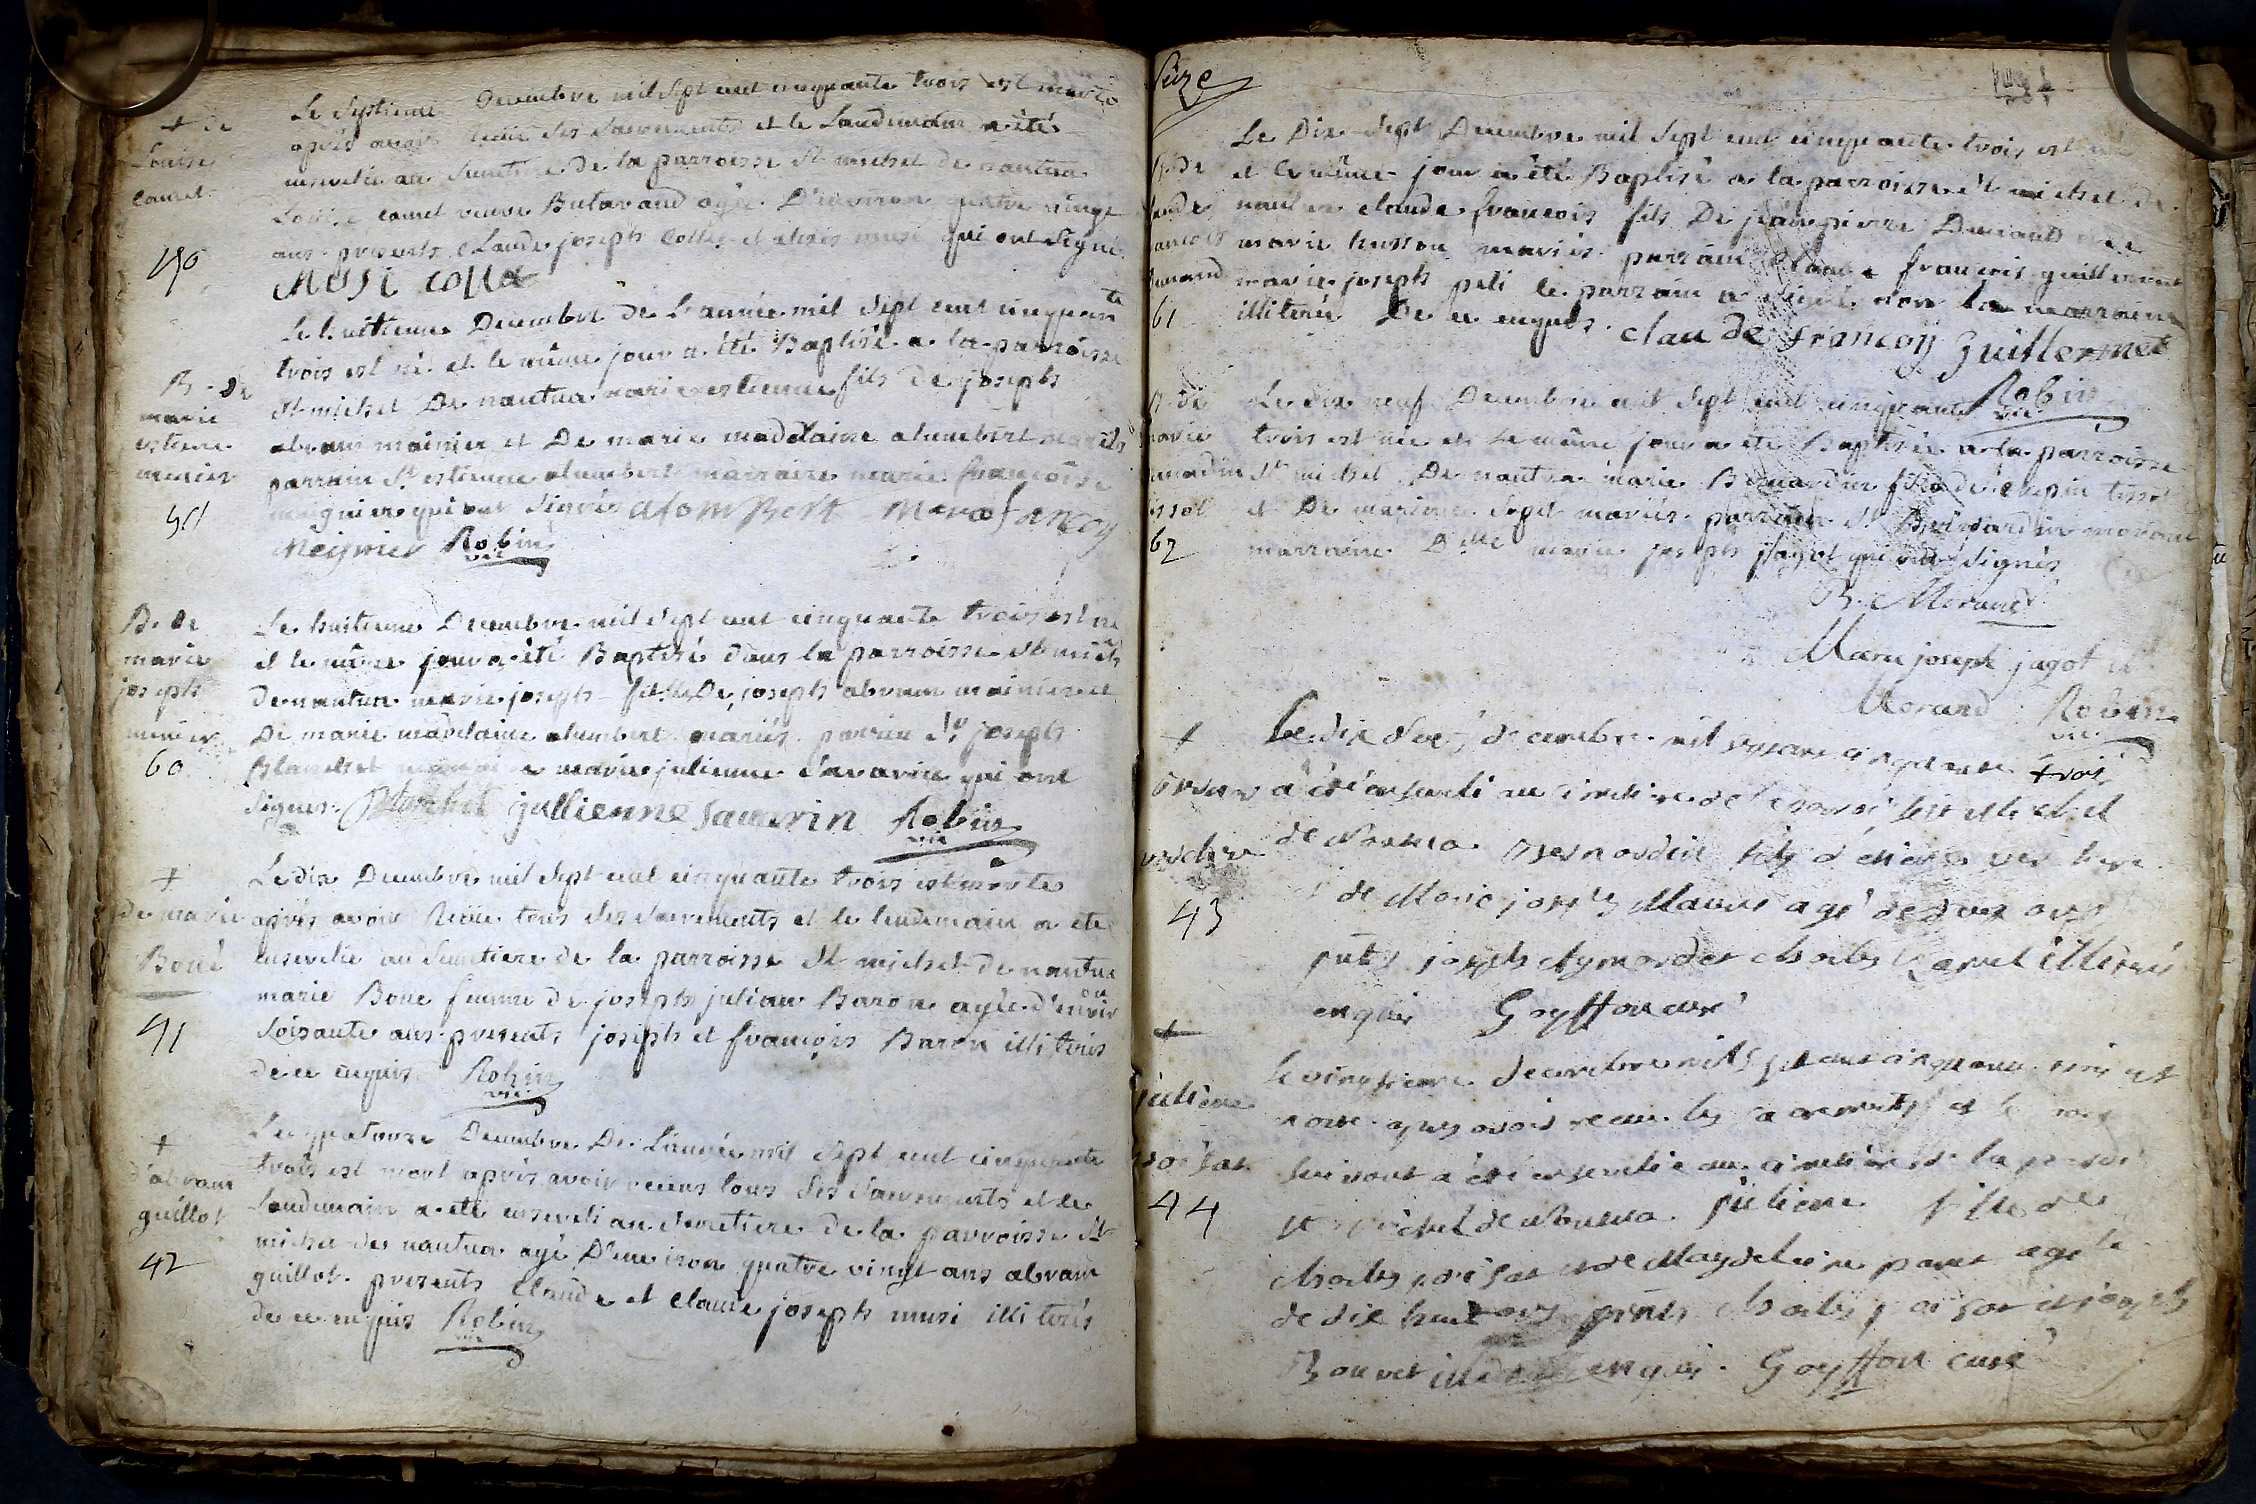 + de
Louise
Camet
40
Le Septieme Decembre mil Sept cent cinquante trois est morte
après avoir reçue ses Sacrements et le Landemain a été
ensevelie au Semetiere de la parroisse St michel de nantua
Louise camet veuve Butavand agée D'environ quatre vingt
ans presents Claude joseph Collet et alexis musi qui ont Signé
MUSI collet
B. de
marie
estiene
menier
59
Le huitieme Decembre de L'année mil Sept cent cinquante
trois est né et le même jour a été Baptisé a la parroisse
St michel De nantua marie estienne fils de joseph
abram mainier et De marie madelaine alumbert mariés
parrain Sr estienne alumbert marraine marie françoise
meignier qui ont Signés alomBert
Meignier Robin
vic
B. de
marie
joseph
menier
60
Le huitieme Decembre mil Sept cent cinquante trois est né
et le même jour a été Baptisé dans la parroisse St michel
de nantua marie joseph fille De joseph abram mainier et
De marie madelaine alumbert mariés parrain Sr joseph
Blanchet marraine marie julienne Savarin qui ont
Signés Blanchet jullienne Savarin Robin
vic
+
de marie
Boué
41
Le dix Decembre mil Sept cent cinquante trois est morte
après avoir reçue tous ses Sacrements et le lendemain a été
ensevelie au Semetiere de la parroisse St michel de nantua
marie Boue femme de joseph julian Baron agée d'environ
Soisante ans presents joseph et françois Baron illiterés
de ce enquis Robin
vic
+
d'abram
guillot
42
Le quatorze Decembre De L'année mil Sept cent cinquante
trois est mort après avoir receus tous Ses Sacrements et le
Landemain a été enseveli au Semetiere de la parroisse St
michel de nantua agé D'environ quatre vingt ans abram
guillot presents Claude et Claude joseph musi illiterés
de ce enquis Robin
vic
B. de
claude
francois
61
Le Dix Sept Decembre mil Sept cent cinquante trois est né
et le même jour a été Baptisé a la parroisse St michel de
nantua claude francois fils De jean pierre et de
marie husson mariés parrain claude francois guillermet
marie joseph peti le parrain a signé non la marraine
illiterée De ce enquis claude françois guillermet
Robin
vic
B. de
marie
62
Le dix neuf Decembre mil Sept cent cinquante
trois est née et le même jour a été Baptisée a la parroisse
St michel De nantua marie Bernardine fille de crepin
et De mariés parrain Sr Bernardin morand
marraine Dlle marie joseph jagot qui ont Signés
B. Morand
Marie joseph jagot
Morand Robin
vic
+
43
Le dix neuf decembre mil Sept cent cinquante trois
a été enseveli au cimetiere de la parroisse St Michel
de Nantua Bernardin fils d'
et de Marie joseph Maurié agé de deux ans
pnts joseph Aymard et charles illiterés
enquis Goyffon curé
+
julienne
44
Le vingtieme decembre mil Sept cent cinquante trois est
morte apres avoir receu les sacrements et le jour
suivant a été ensevelie au cimetiere de la parroisse
St Michel de Nantua julienne fille de
charles et de Magdeleine agée
de dix huit ans pnts charles et joseph
Bouvet illiterés enquis Goyffon curé